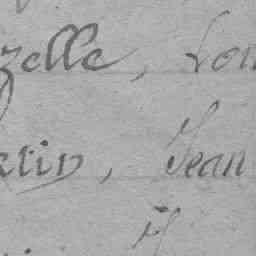 zelle, Lou
rtin, Jean